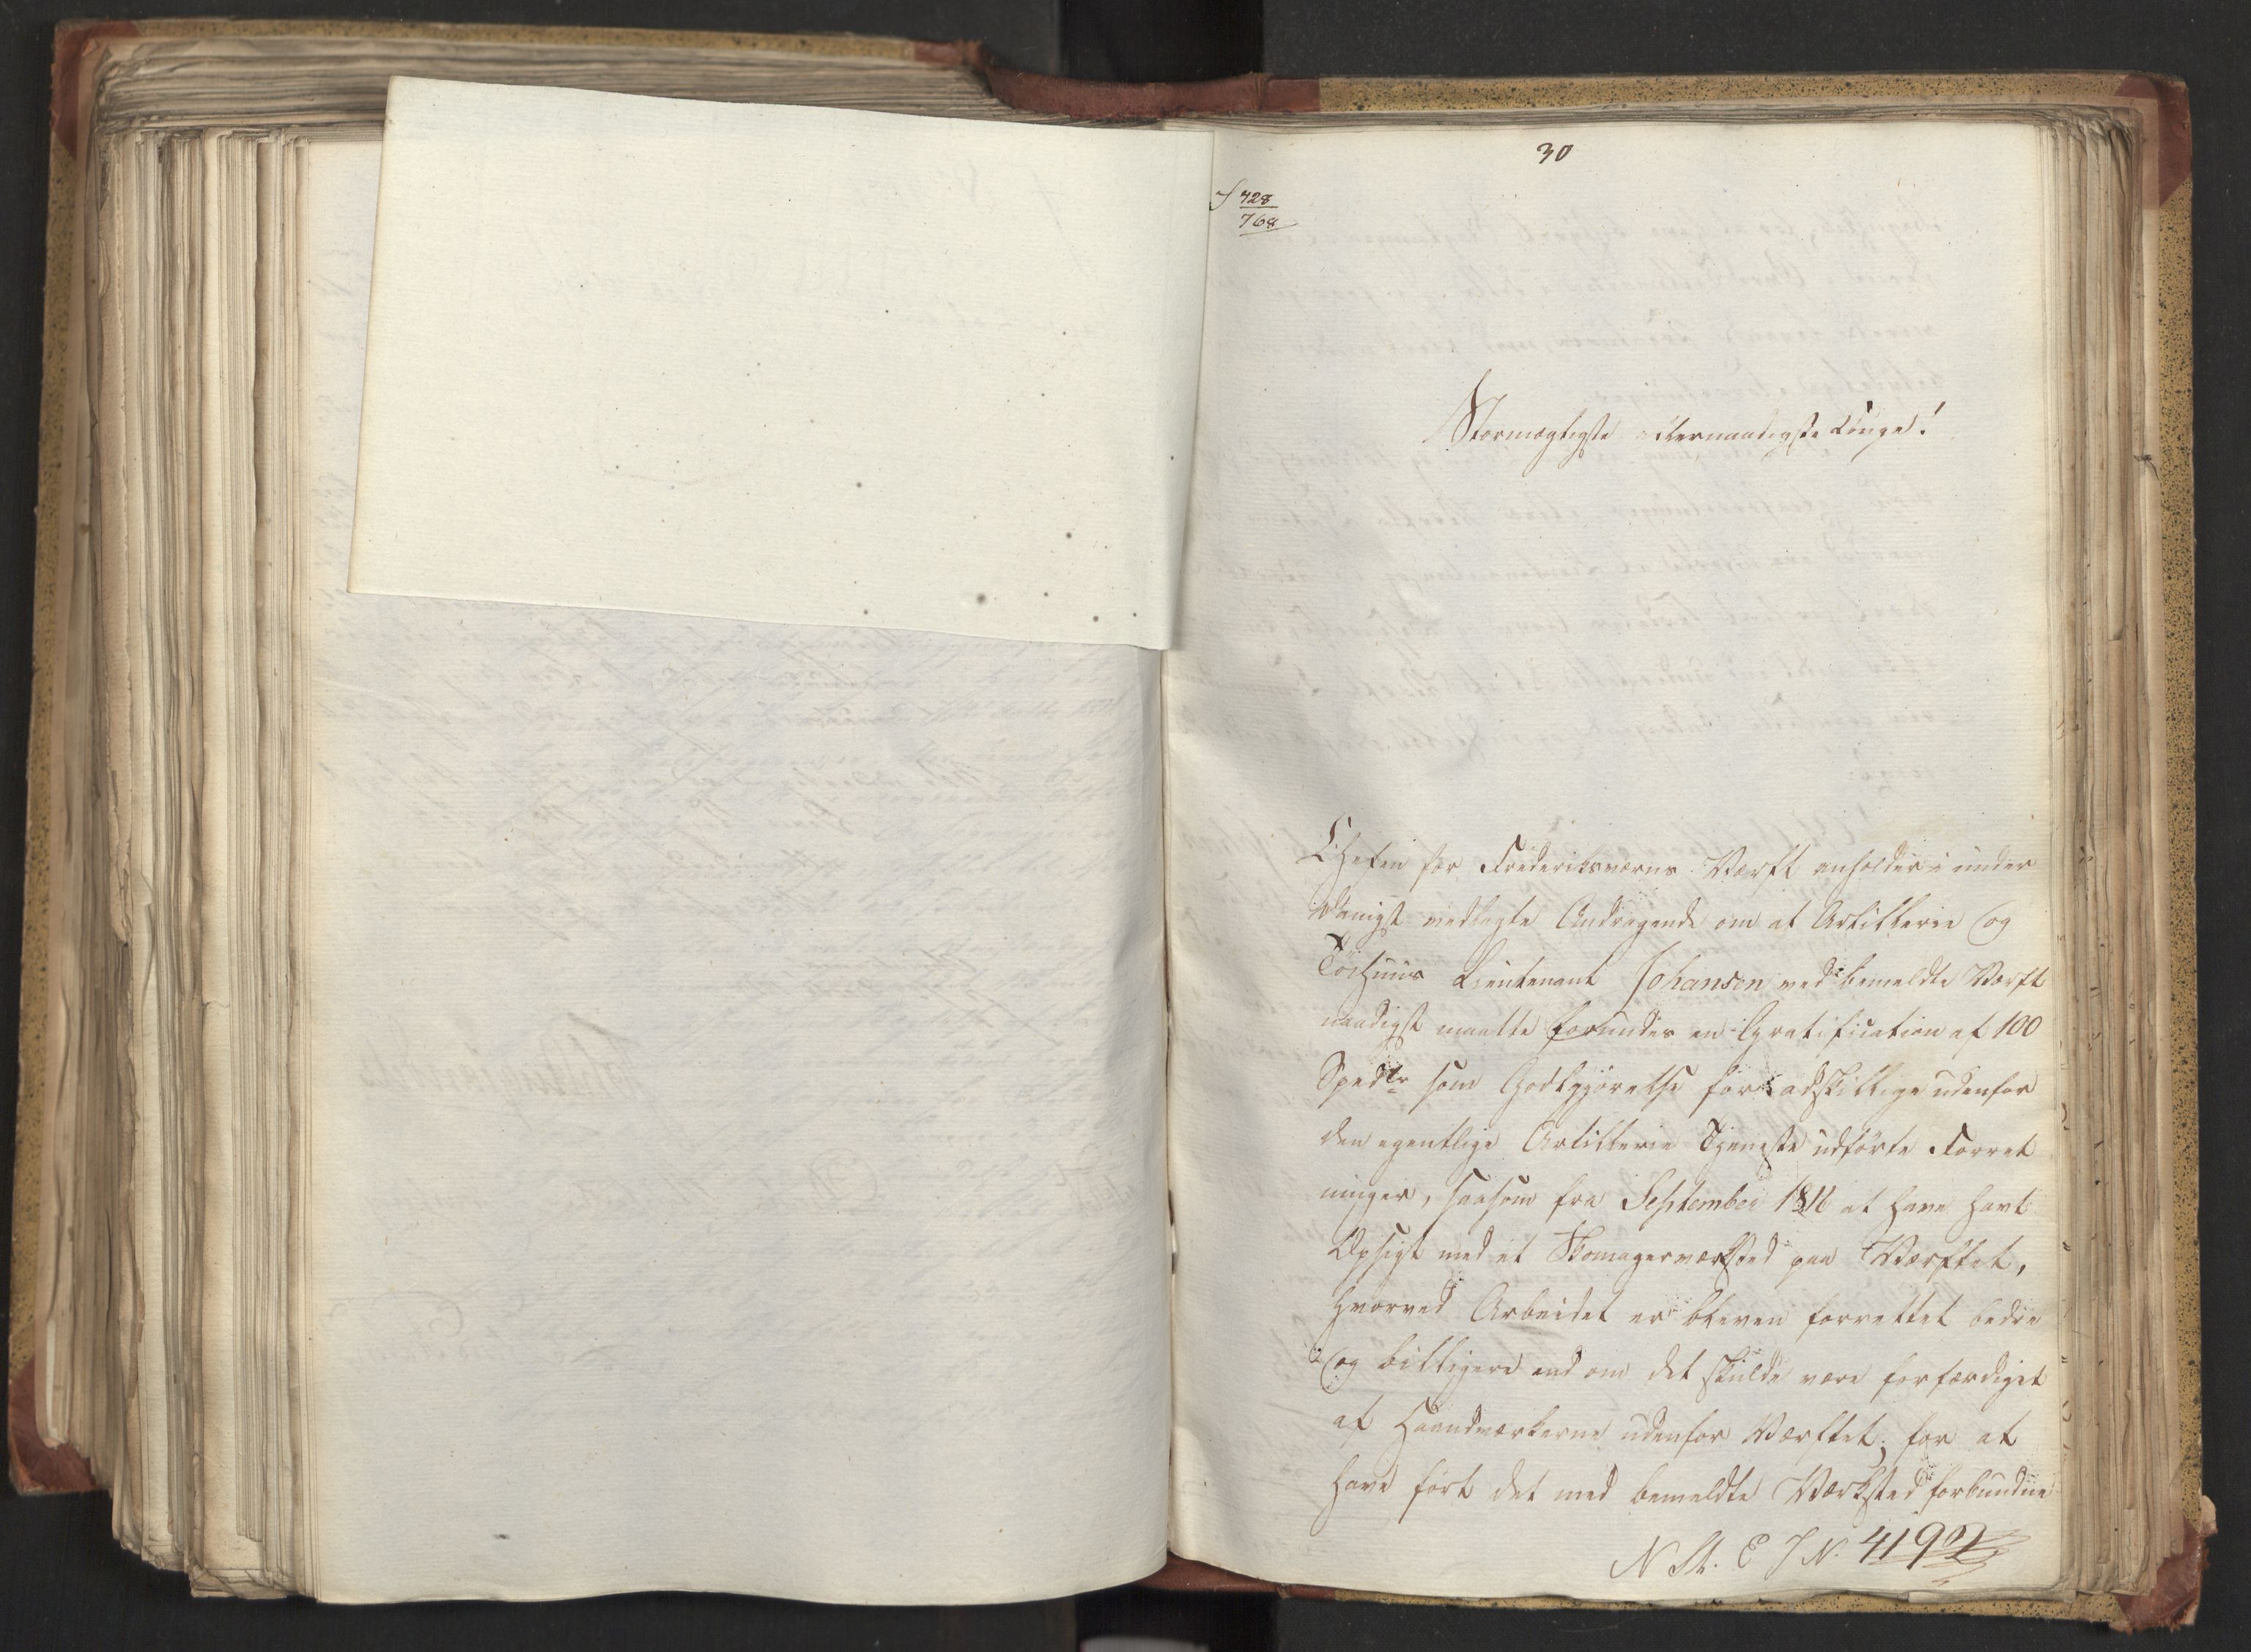 30
J 428
768
Stormægtigste Allernaadigste Konge!
Chefen for Frederiksværns Værft anholder i under
danigst vedlagte Andragende om at Artillerie og
Töihuus Lieutenant Johansen ved bemeldte Værft
naadigst maatte forundes en Gratification af 100
Spedlr som Godtgjörelse for adskillige udenfor
den egentlige Artillerie Tjeneste udförte Forret
ninger, saasom fra September 1816 at have havt
Opsigt med et Skomagerværksted paa Værftet,
hvorved Arbeidet er bleven forrettet bedre
og billigere end om det skulde være forfærdiget
af Haandværkerne udenfor Værftet; for at
have fört det med bemeldte Værksted forbundne
N St. E J N. 4192